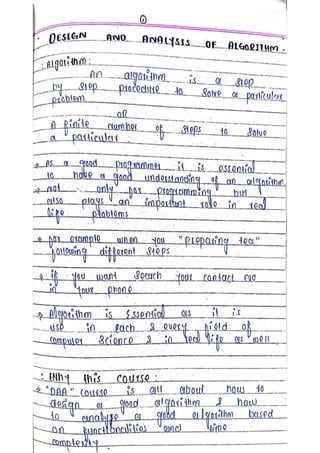 ①
DESIGN AND ANALYSIS OF ALGORITHM.
Algorithm:
An algorithm is a step
by step procedure to solve a particular
problem
OR
A finite number of steps to solve
a particular.
→ As a good programmer it is essential
to have a good understanding of an algorithm
→ Not only for programming but
also plays an important role in real
life problems
→ for example when you "preparing tea"
following different steps
→ if you want search your contact no
in your phone
→ Algorithm is Essential as it is
use in each & every field of
computer science & in real life as well
: Why this course:
→ "DAA" course is all about how to
design a good algorithm & how
to analyse a good algorithm based
on functionalities and time
complexity